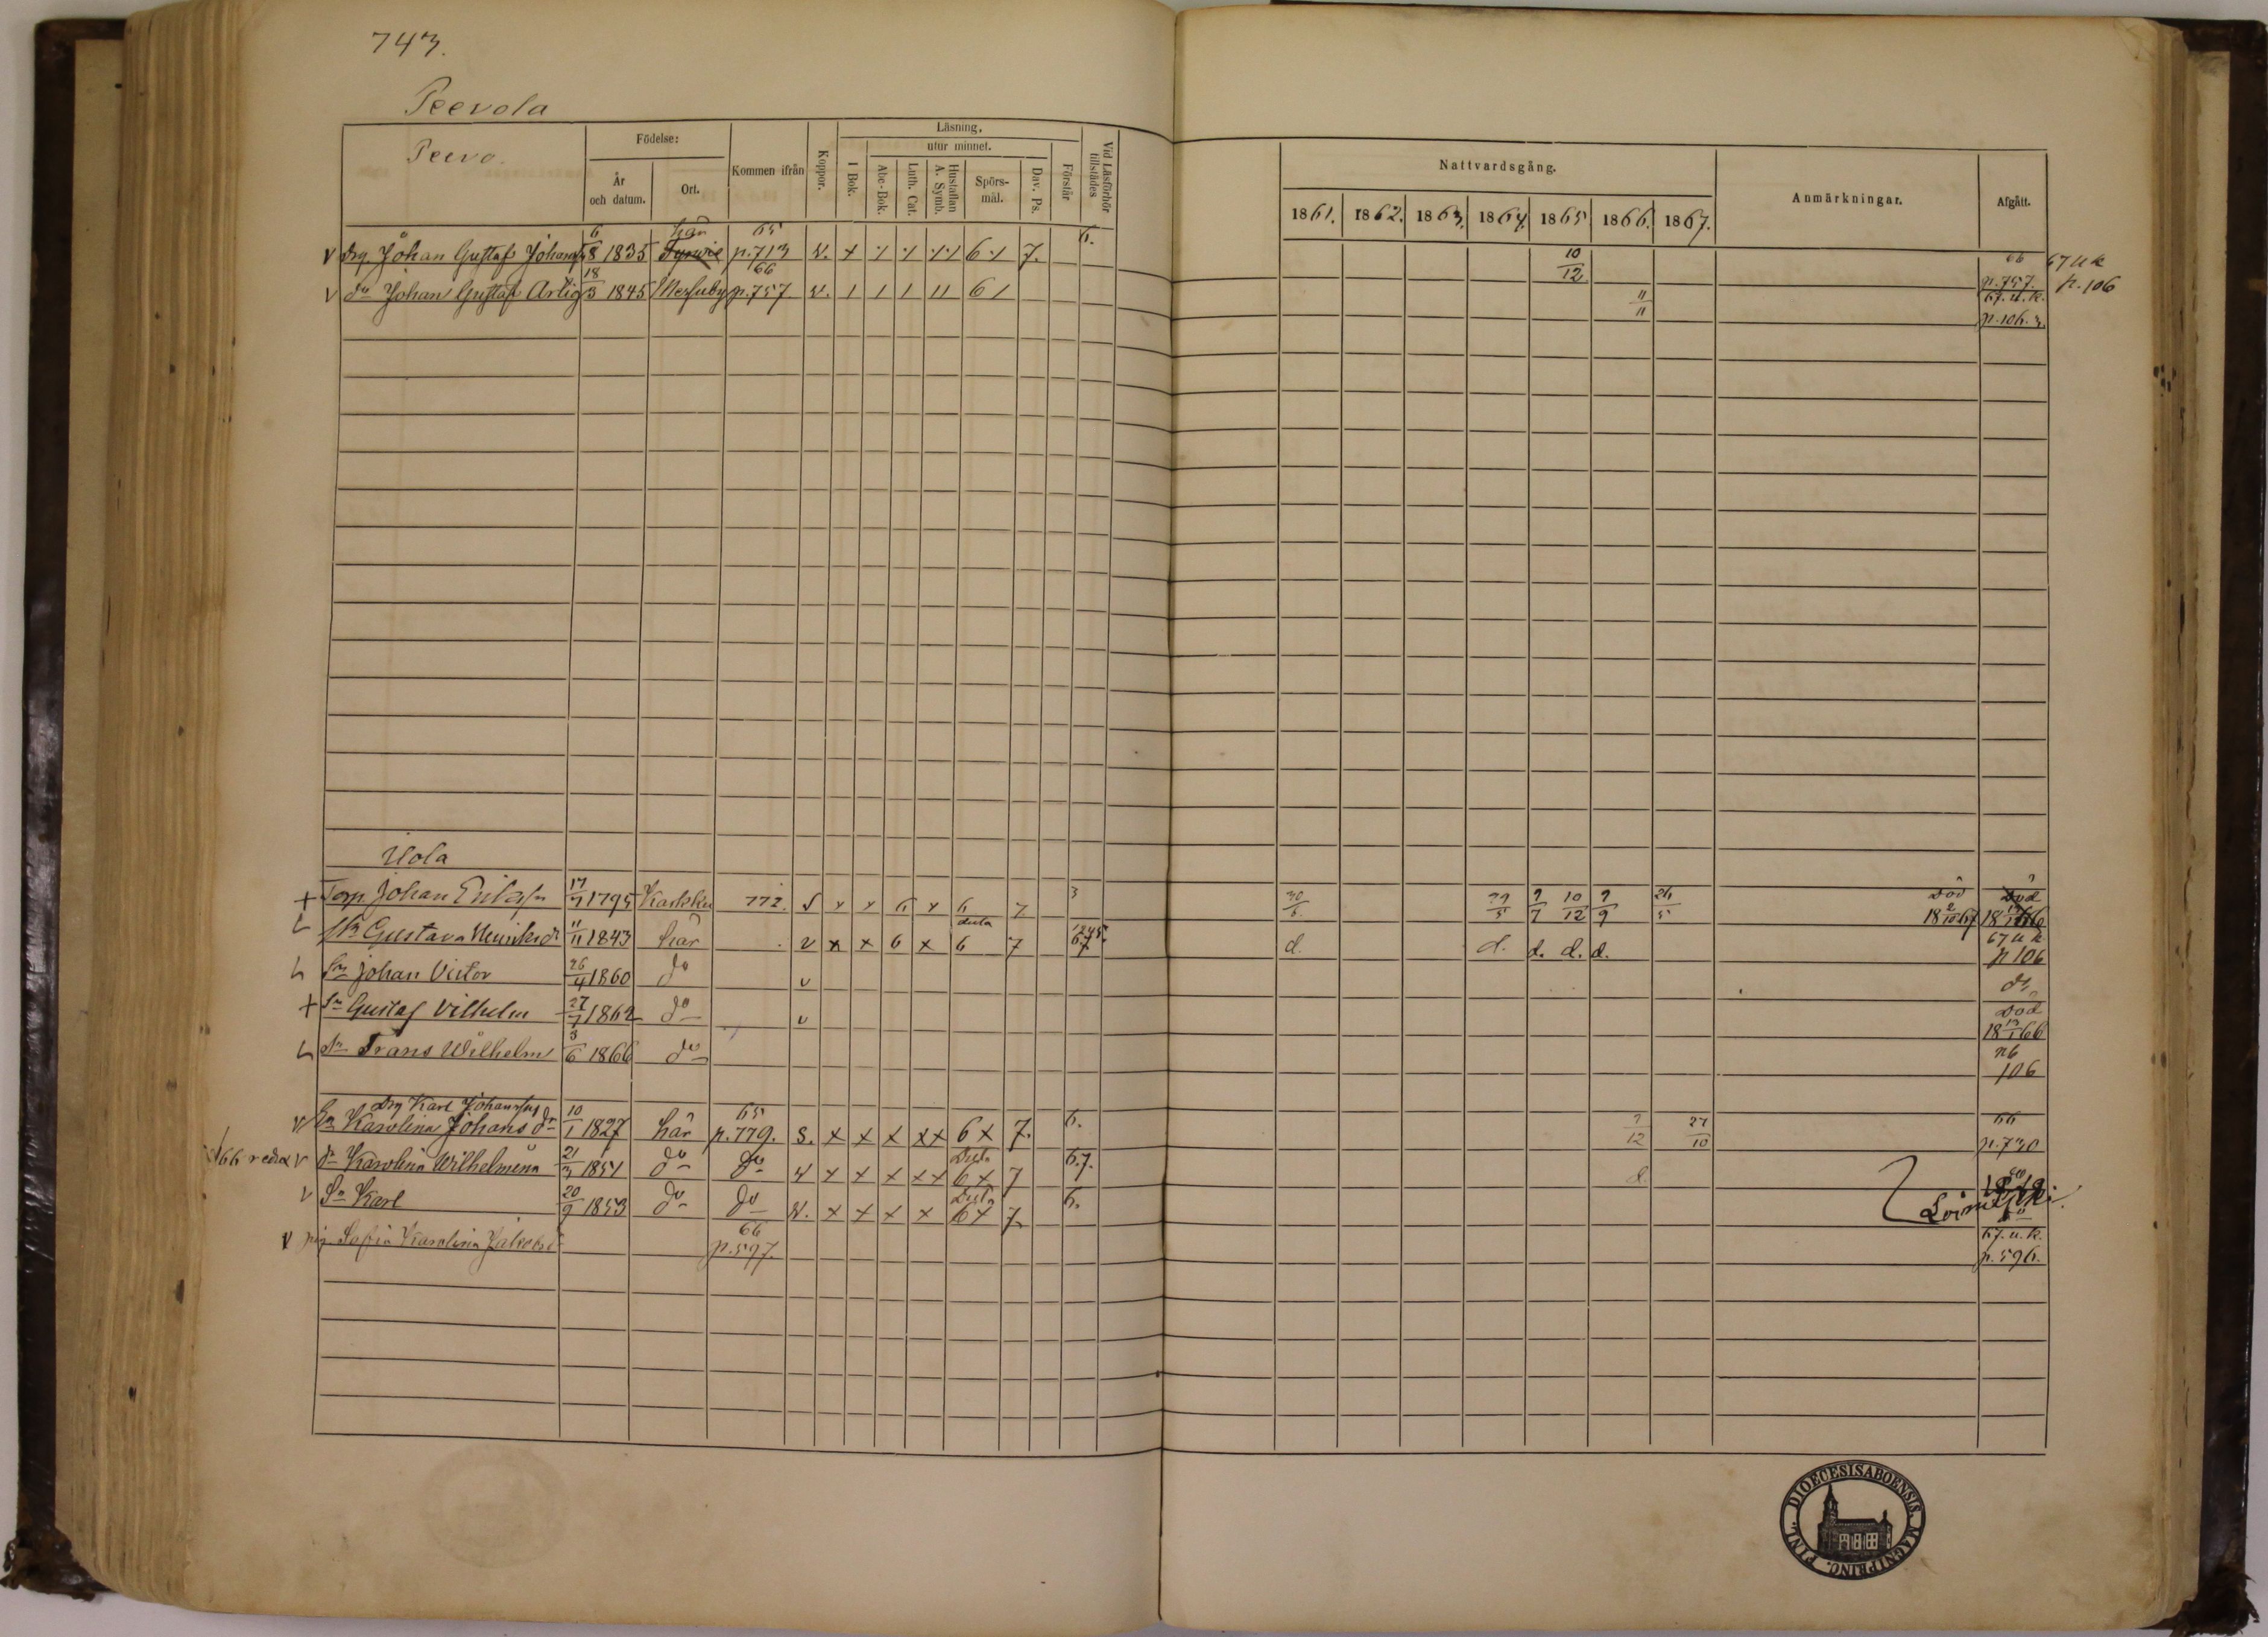 743.
Peevola
Peevo.
Födelse:
År och datum.
Ort.
Kommen ifrån
Koppor.
Läsning.
utur minnet.
I Bok.
Abc-Bok.
Luth. Cat.
Hustaflan A. Symb.
Spörs-mål.
Dav. Ps.
Förstår
Vid Läsförhör tillstädes
Nattvardsgång.
1861. 1862. 1863. 1864. 1865 1866. 1867.
Anmärkningar.
Afgått.
v drg. Johan Gustaf 6/8 1835 här Tyrwis 65 p. 713 v. 6 7. 6. 10/12 66 p. 757. 67 u k p. 106
v do Johan Gustaf Artig 18/3 1845 66 p. 757 v. 1 1 1 11 6 1 11/11 67. u. k. p. 106.
Uola
+ Torp Johan 17/7 1795 Karkku 772. x x 6 x 6 7 3 30/6 29/5 7/7 10/12 9/9 26/5 död 18 2/10 67 död
Gustava 11/11 1843 här v x x 6 x 6 7 1245. 6.7 d. d. d. d. d. 67 u k p 106
Sn Johan Victor 26/4 1860 do v do
+ Sn Gustaf Vilhelm 27/7 1862 do v död 18 13/1 66
Sn Frans Wilhelm 3/6 1866 do 106
Drg Karl
v Karolina Johans dr 10/1 1827 här 65 p. 779. s. x x x xx 6 x 7. 6. 9/12 27/10 66 p. 730
66 v dr Karolina Wilhelmina 21/3 1851 do do v x x x xx 6 x 7 6.7. d.
v Sn Karl 20/9 1853 do do v. x x x x 6 x 7. 6. Loimijoki
v pig. Sofia Karolina Jakobsdr 66 p. 597. 67. u. k. p. 596.
DIOECESIS ABOENSIS. MAGNI PRINC. FINL.